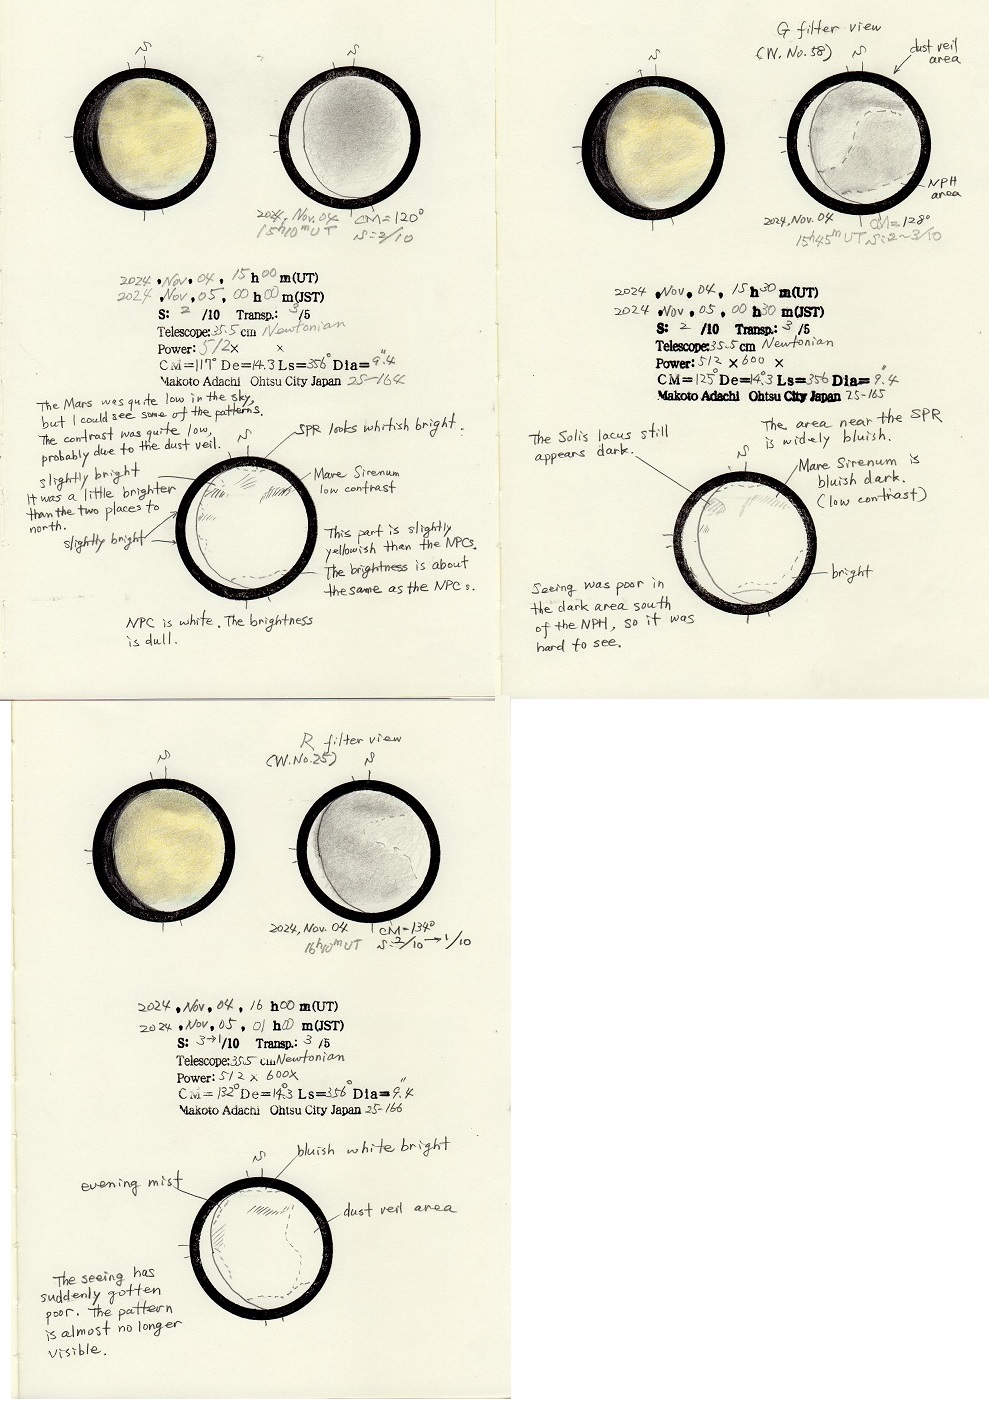 S
2024, Nov. 04 CM=120°
15h10m UT S=2/10
2024, Nov, 04, 15 h 00 m(UT)
2024, Nov, 05, 00 h 00 m(JST)
S: 2 /10 Transp.: 3 /5
Telescope: 35.5 cm Newtonian
Power: 512x x
CM=117° De=14.3 Ls=356° Dia=9.″4
Makoto Adachi Ohtsu City Japan 25-164
The Mars was quite low in the sky,
but I could see some of the patterns.
The contrast was quite low,
probably due to the dust veil.
S
SPR looks whitish bright.
slightly bright
It was a little brighter
than the two places to
north.
slightly bright
Mare Sirenum
low contrast
This part is slightly
yellowish than the NPCs.
The brightness is about
the same as the NPCs.
NPC is white. The brightness
is dull.
G filter view
(W. No. 58)
S
S
dust veil
area
NPH
area
2024, Nov. 04 CM=128°
15h45m UT S=2~3/10
2024, Nov, 04, 15 h 30 m(UT)
2024, Nov, 05, 00 h 30 m(JST)
S: 2 /10 Transp.: 3 /5
Telescope: 35.5 cm Newtonian
Power: 512 × 600 ×
CM=125° De=14.°3 Ls=356 Dia=9.″4
Makoto Adachi Ohtsu City Japan 25-165
The Solis lacus still
appears dark.
The area near the SPR
is widely bluish.
S
Mare Sirenum is
bluish dark.
(low contrast)
bright
Seeing was poor in
the dark area south
of the NPH, so it was
hard to see.
R filter view
(W. No. 25)
S
S
2024, Nov. 04 CM=134°
16h10m UT S=2/10→1/10
2024, Nov, 04, 16 h 00 m(UT)
2024, Nov, 05, 01 h 00 m(JST)
S: 3→1/10 Transp.: 3 /5
Telescope: 35.5 cm Newtonian
Power: 512 x 600x
CM=132° De=14.°3 Ls=356° Dia=9.″4
Makoto Adachi Ohtsu City Japan 25-166
S
bluish white bright
evening mist
dust veil area
The seeing has
suddenly gotten
poor. The pattern
is almost no longer
visible.